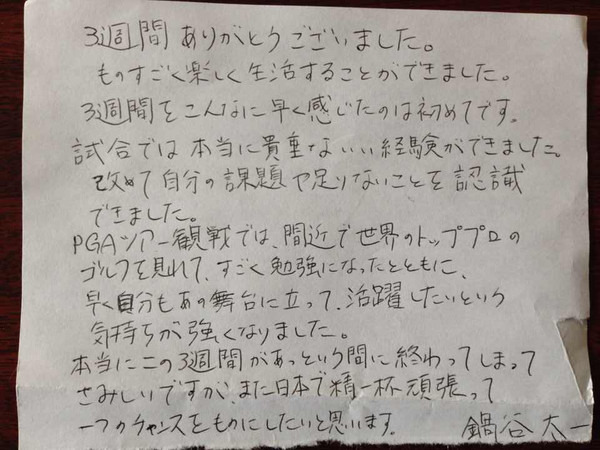 3週間ありがとうございました。
ものすごく楽しく生活することができました。
3週間をこんなに早く感じたのは初めてです。
試合では本当に貴重ないい経験ができました。
改めて自分の課題や足りないことを認識
できました。
PGAツアー観戦では、間近で世界のトッププロの
ゴルフを見れて、すごく勉強になったとともに、
早く自分もあの舞台に立って、活躍したいという
気持ちが強くなりました。
本当にこの3週間があっという間に終わってしまって
さみしいですが、また日本で精一杯頑張って
一つのチャンスをものにしたいと思います。
鍋谷太一